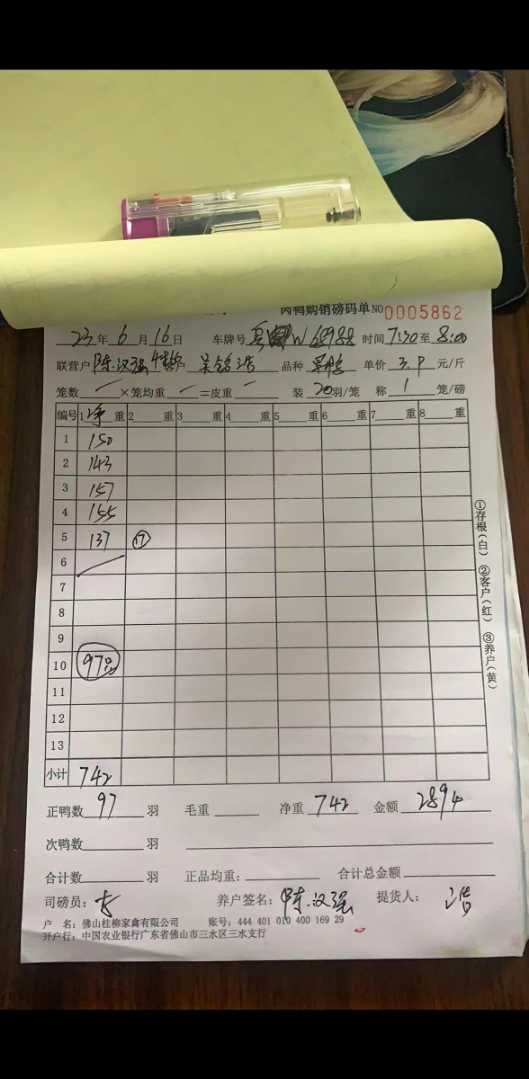 肉鸭购销磅码单 NO 0005862
23年6月16日 车牌号 W 68988 时间 7:30至8:00
联营户 陈汉强 客户 吴铭浩 品种 单价 3.9 元/斤
笼数 — ×笼均重 — =皮重 — 装 20羽/笼 称 1 笼/磅
编号 1 净 重 2 重 3 重 4 重 5 重 6 重 7 重 8 重
1 150
2 143
3 157
4 155
5 137 ⑰
6
7
8
9
10 97只
11
12
13
小计 742
①存根(白) ②客户(红) ③养户(黄)
正鸭数 97 羽 毛重 净重 742 金额 2894
次鸭数 羽
合计数 羽 正品均重: 合计总金额
司磅员: 养户签名: 陈汉强 提货人: 浩
户 名: 佛山桂柳家禽有限公司 账号: 444 401 010 400 169 29
开户行: 中国农业银行广东省佛山市三水区三水支行